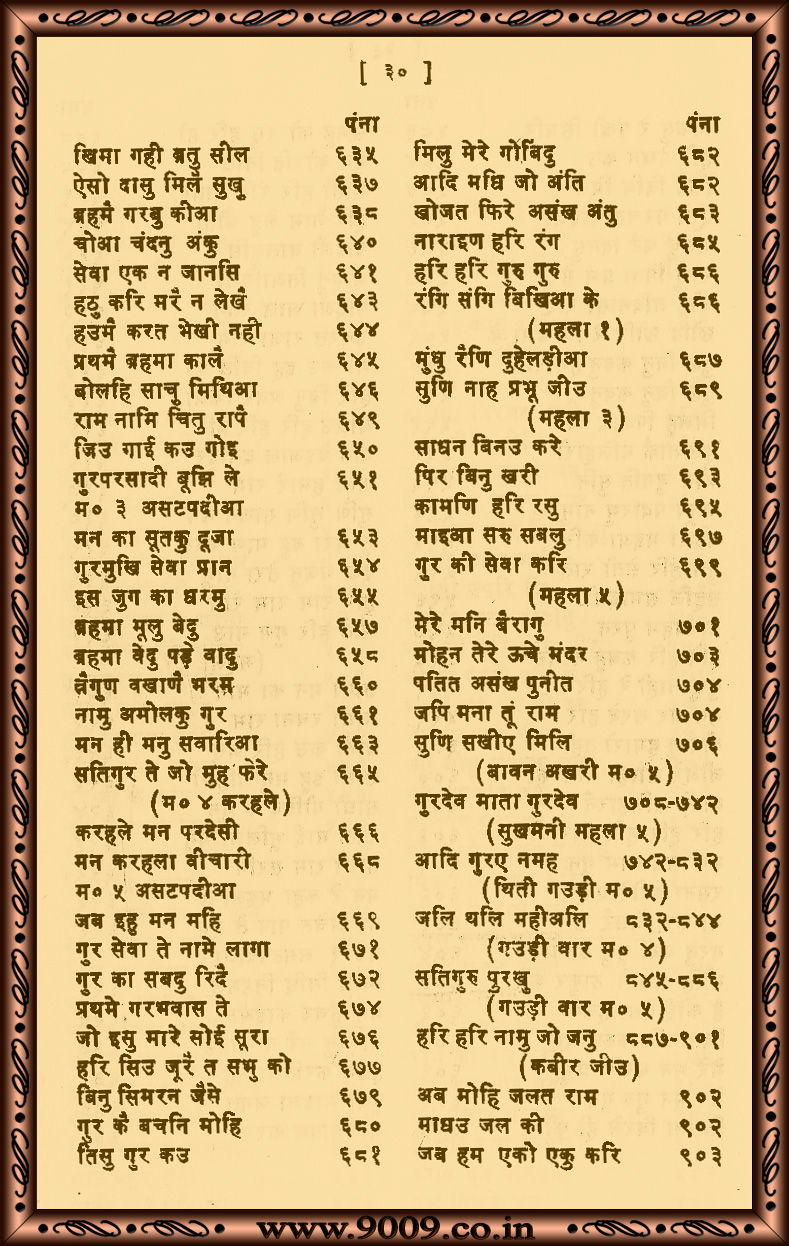 [ ३० ]
पंना
खिमा गही ब्रतु सील ६३५
ऐसो दासु मिलै सुखु ६३७
ब्रहमै गरबु कीआ ६३८
चोआ चंदनु अंकु ६४०
सेवा एक न जानसि ६४१
हठु करि मरै न लेखै ६४३
हउमै करत भेखी नही ६४४
प्रथमै ब्रहमा कालै ६४५
बोलहि साचु मिथिआ ६४६
राम नामि चितु रापै ६४९
जिउ गाई कउ गोइ ६५०
गुरपरसादी बूझि ले ६५१
म० ३ असटपदीआ
मन का सूतकु दूजा ६५३
गुरमुखि सेवा प्रान ६५४
इस जुग का धरमु ६५५
ब्रहमा मूलु बेदु ६५७
ब्रहमा वेदु पड़े वादु ६५८
त्रैगुण वखाणै भरम ६६०
नामु अमोलकु गुर ६६१
मन ही मनु सवारिआ ६६३
सतिगुर ते जो मुह फेरे ६६५
(म० ४ करहले)
करहले मन परदेसी ६६६
मन करहला वीचारी ६६८
म० ५ असटपदीआ
जब इहु मन महि ६६९
गुर सेवा ते नामे लागा ६७१
गुर का सबदु रिदै ६७२
प्रथमे गरभवास ते ६७४
जो इसु मारे सोई सूरा ६७६
हरि सिउ जूरै त सभु को ६७७
बिनु सिमरन जैसे ६७९
गुर कै बचनि मोहि ६८०
तिसु गुर कउ ६८१
पंना
मिलु मेरे गोबिंदु ६८२
आदि मधि जो अंति ६८२
खोजत फिरे असंख अंतु ६८३
नाराइण हरि रंग ६८५
हरि हरि गुरु गुरु ६८६
रंगि संगि बिखिआ के ६८६
(महला १)
मुंधु रैणि दुहेलड़ीआ ६८७
सुणि नाह प्रभू जीउ ६८९
(महला ३)
साधन बिनउ करे ६९१
पिर बिनु खरी ६९३
कामणि हरि रसु ६९५
माइआ सरु सबलु ६९७
गुर की सेवा करि ६९९
(महला ५)
मेरे मनि बैरागु ७०१
मोहन तेरे ऊचे मंदर ७०३
पतित असंख पुनीत ७०४
जपि मना तूं राम ७०४
सुणि सखीए मिलि ७०६
(बावन अखरी म० ५)
गुरदेव माता गुरदेव ७०८-७४२
(सुखमनी महला ५)
आदि गुरए नमह ७४२-८३२
(थिती गउड़ी म० ५)
जलि थलि महीअलि ८३२-८४४
(गउड़ी वार म० ४)
सतिगुरु पुरखु ८४५-८८६
(गउड़ी वार म० ५)
हरि हरि नामु जो जनु ८८७-९०१
(कबीर जीउ)
अब मोहि जलत राम ९०२
माधउ जल की ९०२
जब हम एको एकु करि ९०३
www.9009.co.in